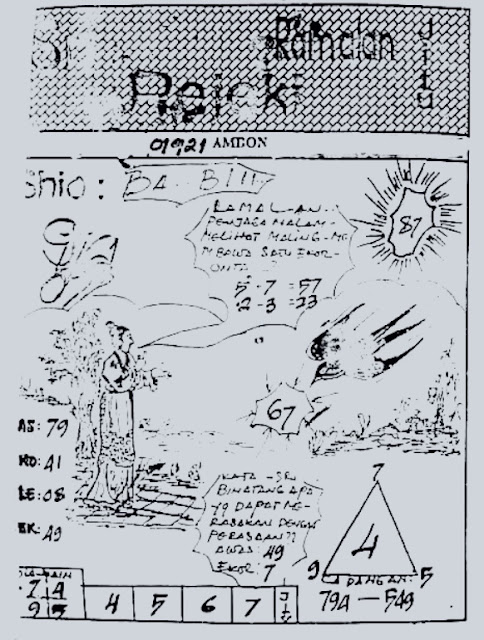 Ramalan
Jitu
Rejeki
AMBON
Shio: BA..BI!!!
RAMAL-AN..
PENJAGA MALAM-
MELIHAT MALING-ME
MBAWA SATU EKOR-
UNTA
5-7 =57
2-3 =23
87
67
AS: 79
KO: 41
KE: 08
EK: 49
KATA-SRI
BINATANG APA
YG DAPAT ME-
RASAKAN DENGAN
PERASAAN??
AWAS: 49
EKOR: 7
7
4
9 DANGAN 5
794 — 549
7 4
9 5
4 5 6 7 JITU